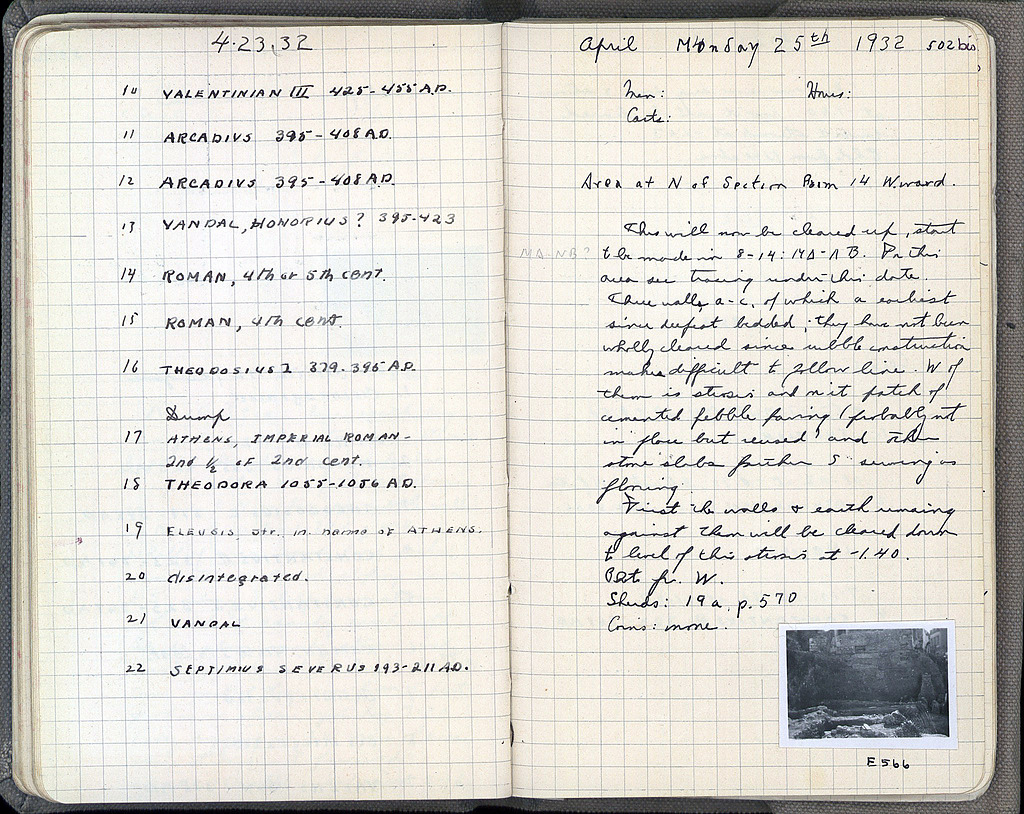 4.23.32
10 VALENTINIAN III 425-455 A.D.
11 ARCADIUS 395-408 A.D.
12 ARCADIUS 395-408 A.D.
13 VANDAL, HONORIUS? 395-423
14 ROMAN, 4th or 5th cent.
15 ROMAN, 4th cent.
16 THEODOSIUS I 379-395 A.D.
Dump
17 ATHENS, IMPERIAL ROMAN-
2nd ½ of 2nd cent.
18 THEODORA 1055-1056 A.D.
19 ELEUSIS, str. in name of ATHENS.
20 disintegrated.
21 VANDAL
22 SEPTIMIUS SEVERUS 193-211 A.D.
April Monday 25th 1932 502 bis
Men: Hours:
Carts:
Area at N of Section from 14 W.ward.
This will now be cleared up, start
MA-NB? to be made in 8-14: For this
area see tracing under this date.
Three walls, a-c, of which a earliest
since deepest bedded; they have not been
wholly cleared since rubble construction
makes difficult to follow line. W of
them is stereo and in it patch of
cemented pebble paving (probably not
in place but reused) and other
stone slabs further S serving as
flooring.
First the walls & earth remaining
against them will be cleared down
to level of this at -1.40.
fr. W.
Sherds: 19a, p. 570
Coins: none.
E 566